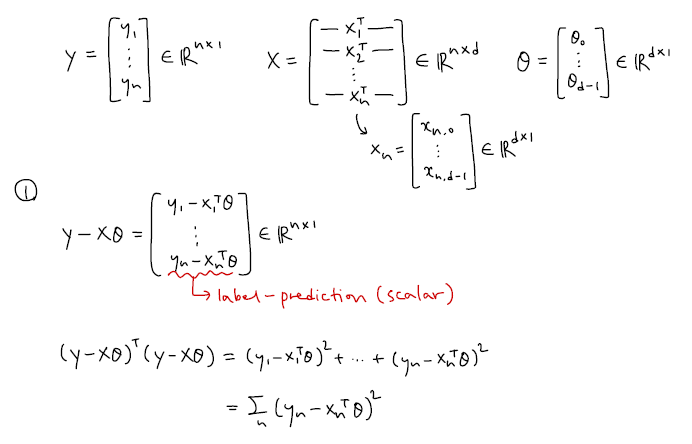 y = [y₁ ⋮ yₙ] ∈ ℝⁿˣ¹   X = [— x₁ᵀ — — x₂ᵀ — ⋮ — xₙᵀ —] ∈ ℝⁿˣᵈ   θ = [θ₀ ⋮ θ_{d-1}] ∈ ℝᵈˣ¹
↳ xₙ = [x_{n,0} ⋮ x_{n,d-1}] ∈ ℝᵈˣ¹
①
y - Xθ = [y₁ - x₁ᵀθ ⋮ yₙ - xₙᵀθ] ∈ ℝⁿˣ¹
↳ label - prediction (scalar)
(y - Xθ)ᵀ (y - Xθ) = (y₁ - x₁ᵀθ)² + ... + (yₙ - xₙᵀθ)²
= Σₙ (yₙ - xₙᵀθ)²